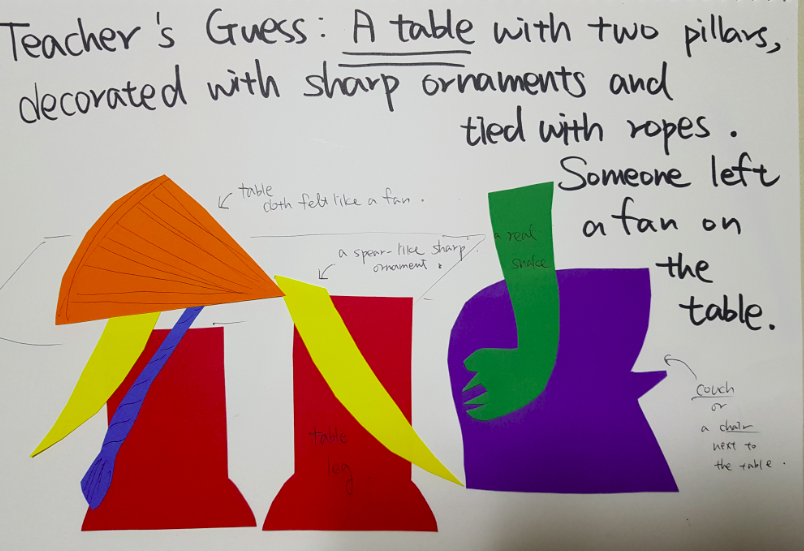 Teacher's Guess: A table with two pillars,
decorated with sharp ornaments and
tied with ropes.
Someone left
a fan on
the
table.
table
cloth felt like a fan.
a spear-like sharp
ornament.
a real
snake
table
leg
couch
or
a chair
next to
the table.